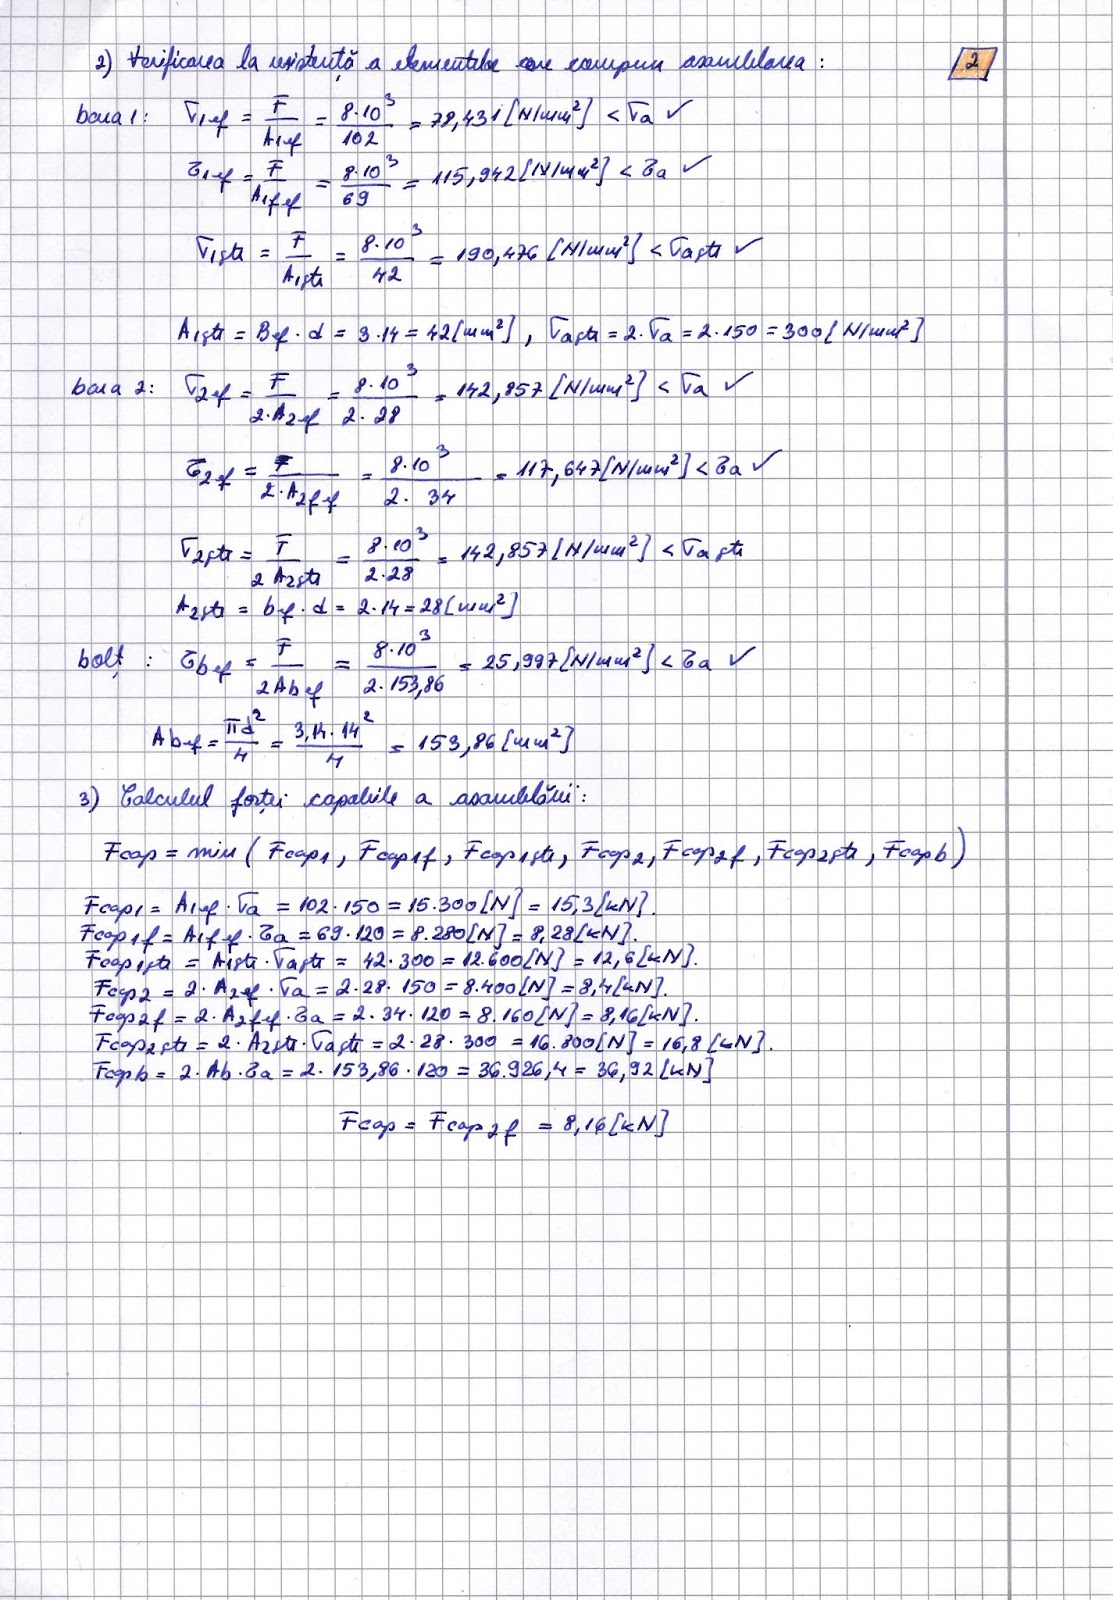 2) Verificarea la rezistență a elementelor care compun asamblarea :
2
bara 1: σ1ef = F/A1ef = 8·10³/102 = 78,431 [N/mm²] < σa ✓
τ1ef = F/A1ff = 8·10³/69 = 115,942 [N/mm²] < τa ✓
σ1str = F/A1str = 8·10³/42 = 190,476 [N/mm²] < σastr ✓
A1str = Bef · d = 3·14 = 42 [mm²] , σastr = 2·σa = 2·150 = 300 [N/mm²]
bara 2: σ2ef = F/2·A2ef = 8·10³/2·28 = 142,857 [N/mm²] < σa ✓
τ2f = F/2·A2ff = 8·10³/2·34 = 117,647 [N/mm²] < τa ✓
σ2str = F/2A2str = 8·10³/2·28 = 142,857 [N/mm²] < σastr
A2str = bef · d = 2·14 = 28 [mm²]
bolț : τbef = F/2Abef = 8·10³/2·153,86 = 25,997 [N/mm²] < τa ✓
Abef = πd²/4 = 3,14·14²/4 = 153,86 [mm²]
3) Calculul forței capabile a asamblării :
Fcap = min ( Fcap1 , Fcap1f , Fcap1str , Fcap2 , Fcap2f , Fcap2str , Fcapb )
Fcap1 = A1ef · σa = 102·150 = 15.300 [N] = 15,3 [kN].
Fcap1f = A1ff · τa = 69·120 = 8.280 [N] = 8,28 [kN].
Fcap1str = A1str · σastr = 42·300 = 12.600 [N] = 12,6 [kN].
Fcap2 = 2·A2ef · σa = 2·28·150 = 8.400 [N] = 8,4 [kN].
Fcap2f = 2·A2ff · τa = 2·34·120 = 8.160 [N] = 8,16 [kN].
Fcap2str = 2·A2str · σastr = 2·28·300 = 16.800 [N] = 16,8 [kN].
Fcapb = 2·Ab·τa = 2·153,86·120 = 36.926,4 = 36,92 [kN]
Fcap = Fcap2f = 8,16 [kN]